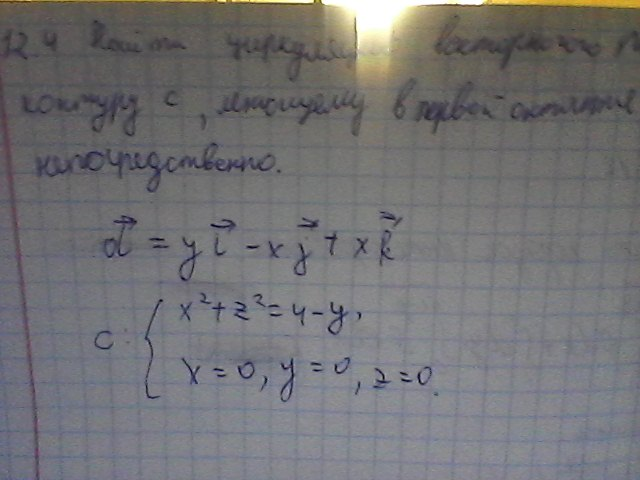 12.4 Найти циркуляцию векторного
контуру С, лежащему в первой октанте
непосредственно.
a⃗ = y i⃗ - x j⃗ + x k⃗
C: { x² + z² = 4 - y,
x = 0, y = 0, z = 0.